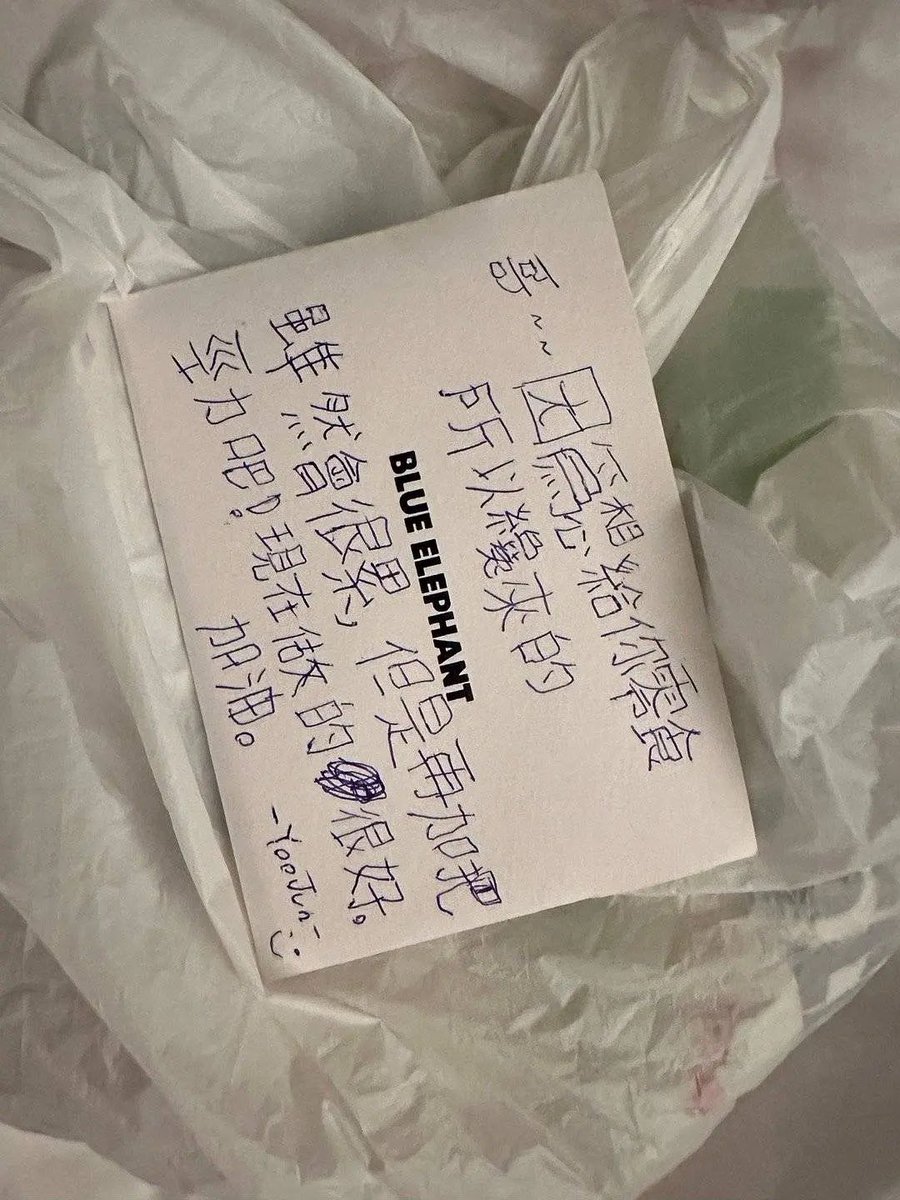 哥~~
因為想給你零食
所以纔來的
BLUE ELEPHANT
雖然會很累, 但是再加把
勁力吧! 現在做的很好。
加油。
-YooJun :)